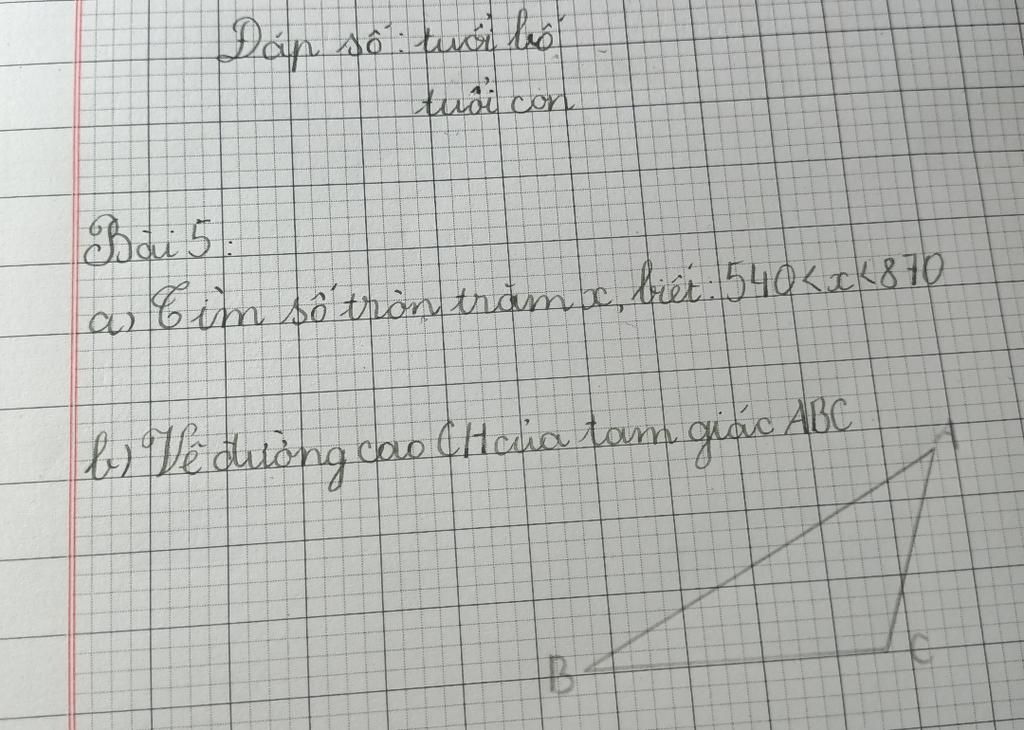 Đáp số: tuổi bố
tuổi con
Bài 5:
a) Tìm số tròn trăm x, biết: 540 < x < 870
b) Vẽ đường cao CH của tam giác ABC
A
B
C